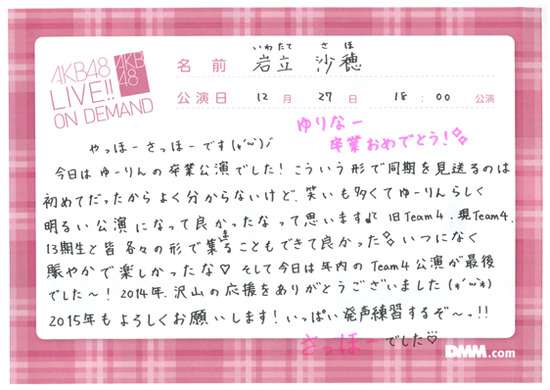 AKB48
LIVE!!
ON DEMAND
AKB
48
いわたて さほ
名前 岩立 沙穂
公演日 12月 27日 18:00 公演
ゆりなー
卒業おめでとう!
やっほーさっほーです(*'ω')ノ
今日はゆーりんの卒業公演でした!こういう形で同期を見送るのは
初めてだったからよく分からないけど、笑いも多くてゆーりんらしく
明るい公演になって良かったなって思います♪ 旧Team4、現Team4、
13期生と皆各々の形で集まることもできて良かった いつになく
賑やかで楽しかったな♡ そして今日は年内のTeam4公演が最後
でした〜!2014年、沢山の応援をありがとうございました(*'ω'*)
2015年もよろしくお願いします!いっぱい発声練習するぞ〜っ!!
さっほーでした♡
DMM.com